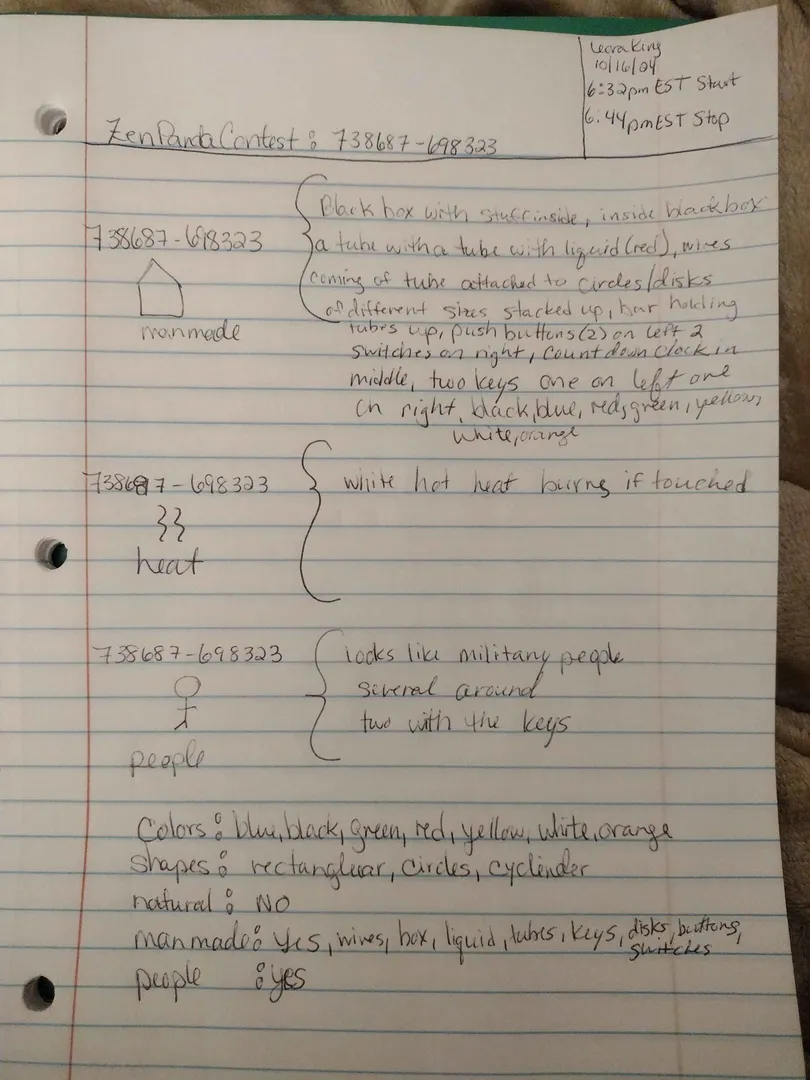 Leora King
10/16/04
6:32pm EST Start
6:44pm EST Stop
Zen Panda Contest: 738687-698323
Black box with stuff inside, inside black box
738687-698323
a tube with a tube with liquid (red), wires
coming of tube attached to circles/disks
of different sizes stacked up, bar holding
manmade
tubes up, push buttons (2) on left 2
switches on right, count down clock in
middle, two keys one on left one
on right, black, blue, red, green, yellow,
white, orange
738687-698323
white hot heat burns if touched
heat
738687-698323
looks like military people
several around
two with the keys
people
Colors: blue, black, green, red, yellow, white, orange
Shapes: rectangluar, circles, cyclinder
natural: NO
manmade: Yes, wires, box, liquid, tubes, keys, disks, buttons,
switches
people: yes